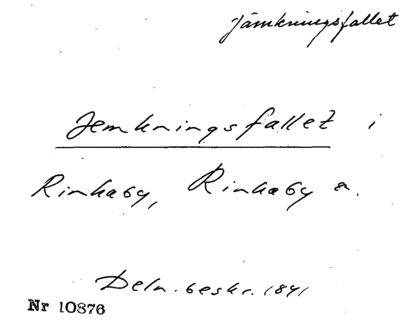 Jämkningsfallet
Jemkningsfallet i
Rinkaby, Rinkaby s.
Deln. beskr. 1841
Nr 10876